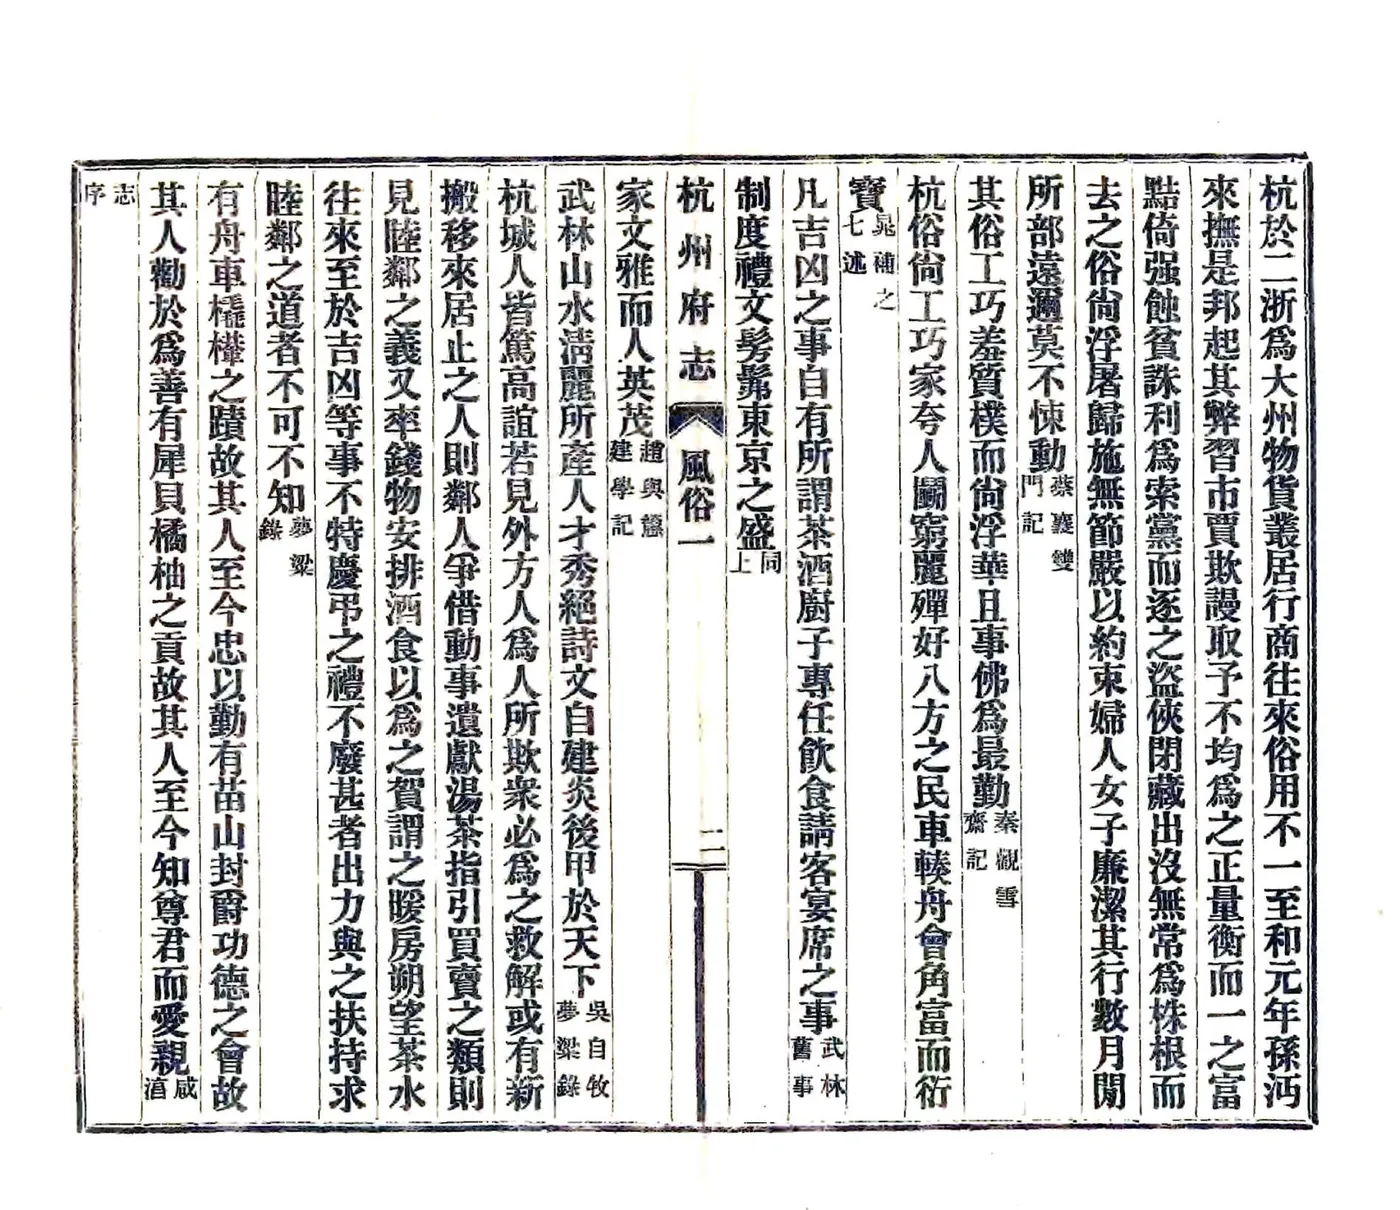 杭於二浙爲大州物貨叢居行商往來俗用不一至和元年孫沔
來撫是邦起其弊習市賈欺謾取予不均爲之正量衡而一之富
點倚强蝕貧誅利爲索黨而逐之盜俠閉藏出沒無常爲株根而
去之俗尙浮屠歸施無節嚴以約束婦人女子廉潔其行數月閒
所部遠邇莫不悚動蔡襄雙門記
其俗工巧羞質樸而尙浮華且事佛爲最勤秦觀雪齋記
杭俗尙工巧家夸人鬭窮麗殫好八方之民車轃舟會角富而衒
寶晁補之七述
凡吉凶之事自有所謂茶酒廚子專任飮食請客宴席之事武林舊事
制度禮文髣髴東京之盛同上
杭州府志 風俗一 二
家文雅而人英茂趙與𥲅建學記
武林山水淸麗所產人才秀絕詩文自建炎後甲於天下吳自牧夢粱錄
杭城人皆篤高誼若見外方人爲人所欺衆必爲之救解或有新
搬移來居止之人則鄰人爭借動事遺獻湯茶指引買賣之類則
見睦鄰之義又率錢物安排酒食以爲之賀謂之暖房朔望茶水
往來至於吉凶等事不特慶弔之禮不廢甚者出力與之扶持求
睦鄰之道者不可不知夢粱錄
有舟車橇檋之蹟故其人至今忠以勤有苗山封爵功德之會故
其人勸於爲善有犀貝橘柚之貢故其人至今知尊君而愛親咸淳
志序